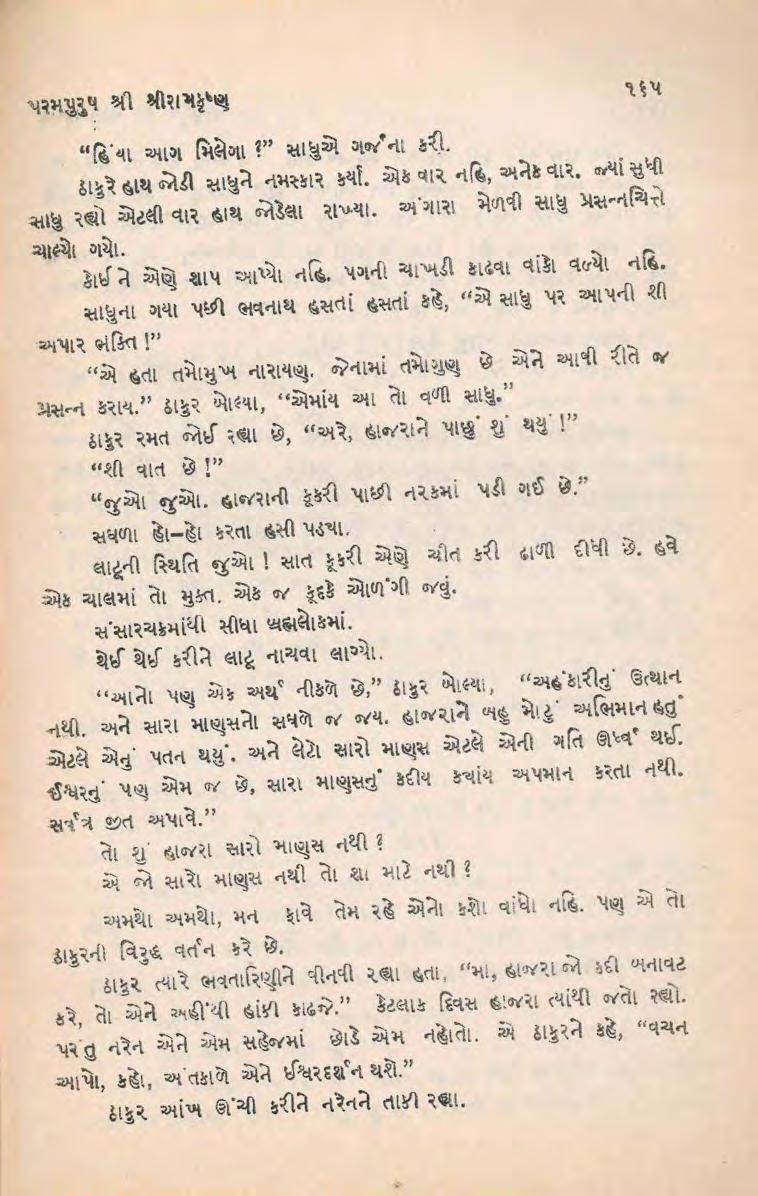 પરમપુરુષ શ્રી શ્રીરામકૃષ્ણ
૧૬૫
“હિંયા આગ મિલેગા ?” સાધુએ ગર્જના કરી.
ઠાકુરે હાથ જોડી સાધુને નમસ્કાર કર્યા. એક વાર નહિ, અનેક વાર. જ્યાં સુધી
સાધુ રહ્યો એટલી વાર હાથ જોડેલા રાખ્યા. અંગારા મેળવી સાધુ પ્રસન્નચિત્તે
ચાલ્યો ગયો.
કોઈ ને એણે શાપ આપ્યો નહિ. પગની ચાખડી કાઢવા વાંકો વળ્યો નહિ.
સાધુના ગયા પછી ભવનાથ હસતાં હસતાં કહે, “એ સાધુ પર આપની શી
અપાર ભક્તિ !”
“એ હતા તમોમુખ નારાયણ. જેનામાં તમોગુણ છે એને આવી રીતે જ
પ્રસન્ન કરાય.” ઠાકુર બોલ્યા, “એમાંય આ તો વળી સાધુ.”
ઠાકુર રમત જોઈ રહ્યા છે, “અરે, હાજરાને પાછું શું થયું !”
“શી વાત છે !”
“જુઓ જુઓ. હાજરાની કૂકરી પાછી નરકમાં પડી ગઈ છે.”
સઘળા હો–હો કરતા હસી પડ્યા.
લાટૂની સ્થિતિ જુઓ ! સાત કૂકરી એણે ચીત કરી ઢાળી દીધી છે. હવે
એક ચાલમાં તો મુક્ત. એક જ કૂદકે ઓળંગી જવું.
સંસારચક્રમાંથી સીધા બ્રહ્મલોકમાં.
થેઈ થેઈ કરીને લાટૂ નાચવા લાગ્યો.
“આનો પણ એક અર્થ નીકળે છે,” ઠાકુર બોલ્યા, “અહંકારીનું ઉત્થાન
નથી. અને સારા માણસનો સઘળે જ જય. હાજરાને બહુ મોટું અભિમાન હતું
એટલે એનું પતન થયું. અને લેટો સારો માણસ એટલે એની ગતિ ઊર્ધ્વ થઈ.
ઈશ્વરનું પણ એમ જ છે, સારા માણસનું કદીય કયાંય અપમાન કરતા નથી.
સર્વત્ર જીત અપાવે.”
તો શું હાજરા સારો માણસ નથી ?
એ જો સારો માણસ નથી તો શા માટે નથી ?
અમથો અમથો, મન ફાવે તેમ રહે એનો કશો વાંધો નહિ. પણ એ તો
ઠાકુરની વિરુદ્ધ વર્તન કરે છે.
ઠાકુર ત્યારે ભવતારિણીને વીનવી રહ્યા હતા, “મા, હાજરા જો કદી બનાવટ
કરે, તો એને અહીંથી હાંકી કાઢજે.” કેટલાક દિવસ હાજરા ત્યાંથી જતો રહ્યો.
પરંતુ નરેન એને એમ સહેજમાં છોડે એમ નહોતો. એ ઠાકુરને કહે, “વચન
આપો, કહો, અંતકાળે એને ઈશ્વરદર્શન થશે.”
ઠાકુર આંખ ઊંચી કરીને નરેનને તાકી રહ્યા.